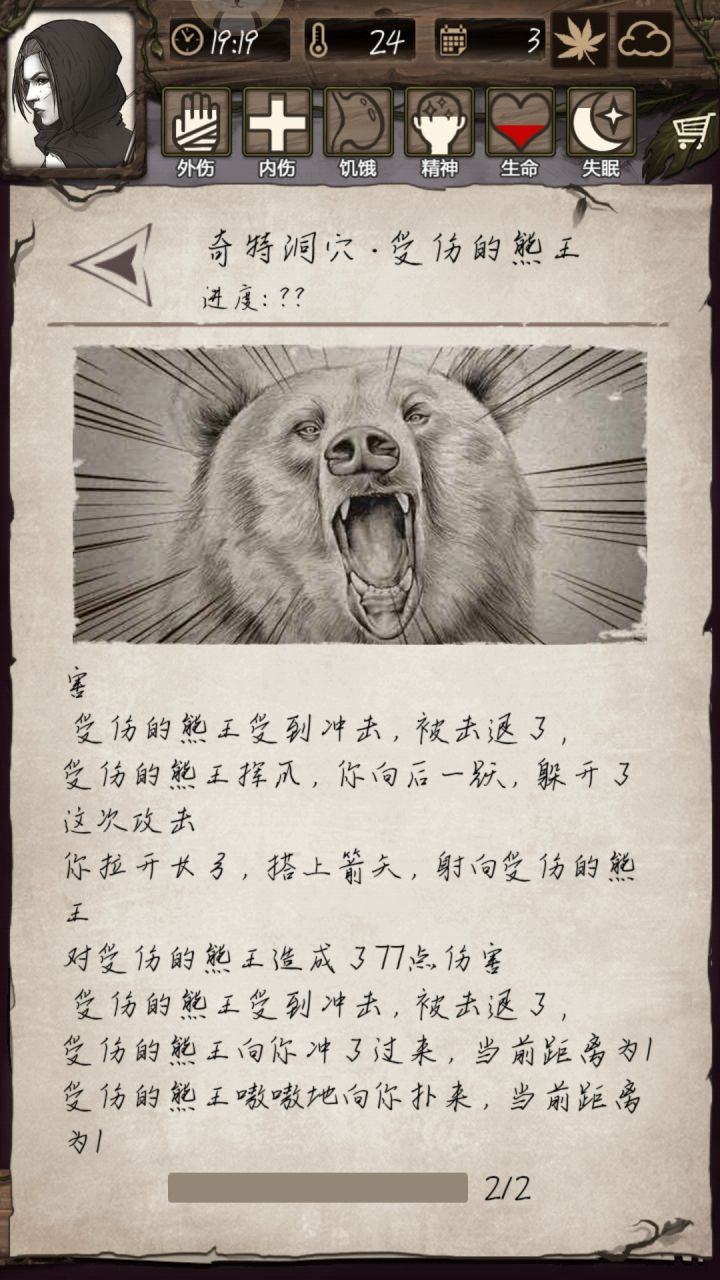 19:19 24 3
外伤 内伤 饥饿 精神 生命 失眠
奇特洞穴·受伤的熊王
进度:??
害
受伤的熊王受到冲击,被击退了,
受伤的熊王挥爪,你向后一跃,躲开了
这次攻击
你拉开长弓,搭上箭矢,射向受伤的熊
王
对受伤的熊王造成了77点伤害
受伤的熊王受到冲击,被击退了,
受伤的熊王向你冲了过来,当前距离为1
受伤的熊王嗷嗷地向你扑来,当前距离
为1
2/2